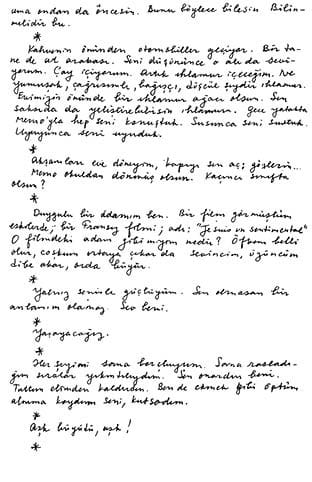 ama ondan da öncesin. Bunu böylece bilesin. Bilin-
melidir bu.
*
Kahvenin önünden otomobiller geçiyor. Bir ta-
ne de at arabası. Seni düşününce o atı da sevi-
yorum. Çay içiyorum. Artık ıhlamur içeceğim. Ne
yumuşak, çağrışımlı, bağışçı, düşçül şeydir ıhlamur.
Evimizin önünde bir ıhlamur ağacı olsun. Sen
saksıda da yetiştirebilirsin ıhlamuru. Gece yatakta
Memo'yla hep seni konuştuk. Susunca seni sustuk.
Uyuyunca seni uyuduk.
*
Akşamları eve döneyim, kapıyı sen aç; gözlerin...
Memo okuldan dönmüş olsun. Kaçıncı sınıfta
olsun?
*
Duygulu bir adamım ben. Bir film görmüştüm
eskilerde, bir Fransız filmi; adı: "Je suis un sentimental"
O filmdeki adam gibi miyim nedir? Öfkem belli
olur, coşkum ortaya çıkar da sevincim, üzüncüm
dibe akar, orda büyür.
*
Yalnız seninle güçlüyüm. Sen olmasan bir
anlamım olamaz. Sev beni.
*
Yaşayacağız.
*
Her şeyimi sana borçluyum. Sana rastladı-
ğım sıralar yıkıntıydım. Sen onardın beni.
Tuttun elimden kaldırdın. Ben de ekmek gibi öptüm
alnıma koydum seni, kutsadım.
*
Aşk büyüdü, aşk!
*